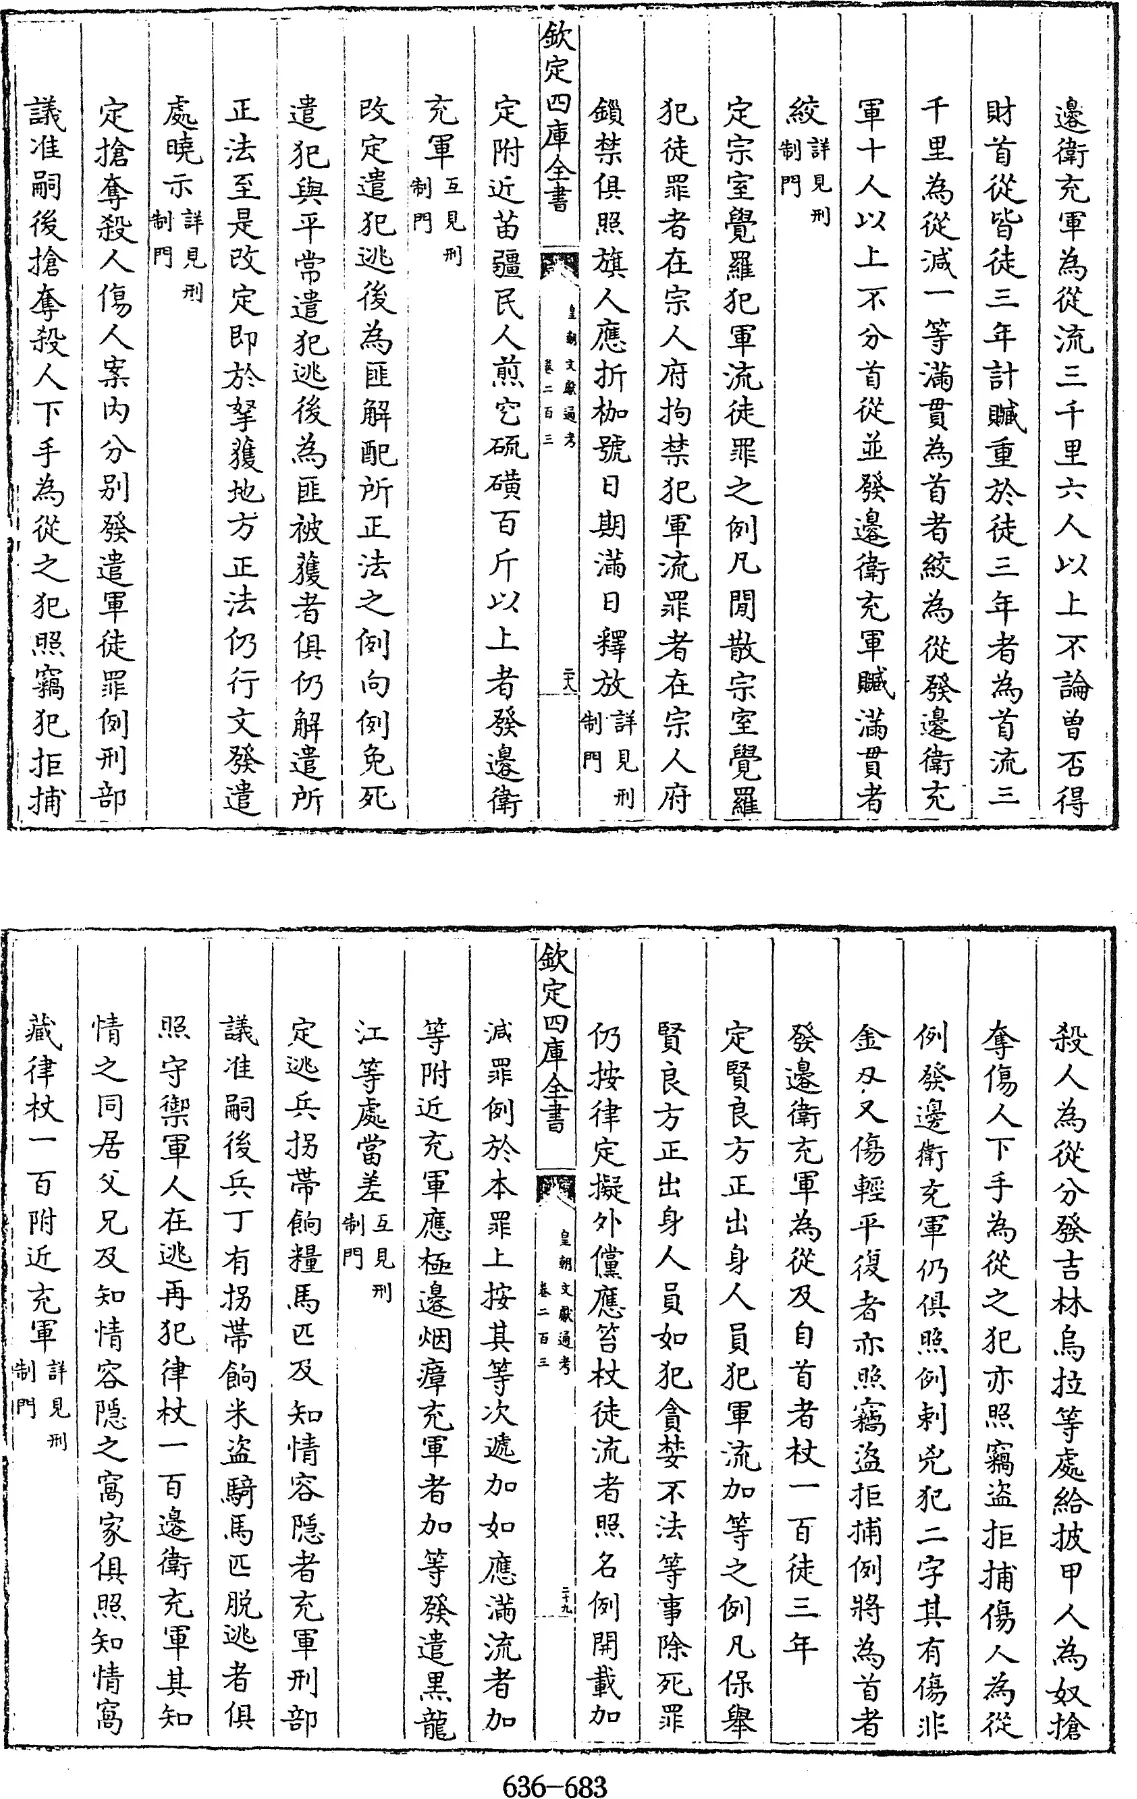 邊衛充軍為從流三千里六人以上不論曽否得
財首從皆徒三年計贓重於徒三年者為首流三
千里為從減一等滿貫為首者絞為從發邊衛充
軍十人以上不分首從並發邊衛充軍贓滿貫者
絞詳見刑制門
定宗室覺羅犯軍流徒罪之例凡閒散宗室覺羅
犯徒罪者在宗人府拘禁犯軍流罪者在宗人府
鎖禁俱照旗人應折枷號日期滿日釋放詳見刑制門
欽定四庫全書
皇朝文獻通考
卷二百三
二十八
定附近苗疆民人煎穵硫磺百斤以上者發邊衛
充軍互見刑制門
改定遣犯逃後為匪解配所正法之例向例免死
遣犯與平常遣犯逃後為匪被獲者俱仍解遣所
正法至是改定即於拏獲地方正法仍行文發遣
處曉示詳見刑制門
定搶奪殺人傷人案内分别發遣軍徒罪例刑部
議准嗣後搶奪殺人下手為從之犯照竊犯拒捕
殺人為從分發吉林烏拉等處給披甲人為奴搶
奪傷人下手為從之犯亦照竊盜拒捕傷人為從
例發邊衛充軍仍俱照例刺兇犯二字其有傷非
金刄又傷輕平復者亦照竊盜拒捕例將為首者
發邊衛充軍為從及自首者杖一百徒三年
定賢良方正出身人員犯軍流加等之例凡保舉
賢良方正出身人員如犯貪婪不法等事除死罪
仍按律定擬外儻應笞杖徒流者照名例開載加
欽定四庫全書
皇朝文獻通考
卷二百三
二十九
減罪例於本罪上按其等次遞加如應滿流者加
等附近充軍應極邊烟瘴充軍者加等發遣黑龍
江等處當差互見刑制門
定逃兵拐帶餉糧馬匹及知情容隱者充軍刑部
議准嗣後兵丁有拐帶餉米盜騎馬匹脱逃者俱
照守禦軍人在逃再犯律杖一百邊衛充軍其知
情之同居父兄及知情容隱之窩家俱照知情窩
藏律杖一百附近充軍詳見刑制門
636-683